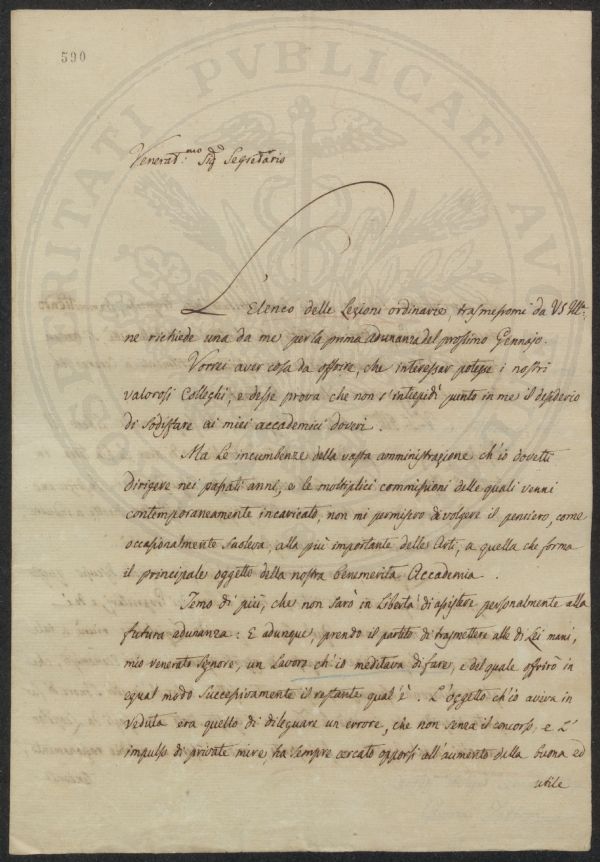 590
Venerat.mo Sigr Segretario
L'Elenco delle Lezioni ordinarie, trasmessomi da VS Ill.
ne richiede una da me per la prima adunanza del prossimo Gennajo.
Vorrei aver cosa da offrire, che interessar potesse i nostri
valorosi Colleghi, e desse prova che non s'intiepidì punto in me il desiderio
di sodisfare ai miei accademici doveri.
Ma le incumbenze della vasta amministrazione ch'io dovetti
dirigere nei passati anni, e le moltiplici commissioni delle quali venni
contemporaneamente incaricato, non mi permisero di volgere il pensiero, come
occasionalmente suoleva, alla più importante delle Arti, a quella che forma
il principale oggetto della nostra benemerita Accademia.
Temo di più, che non sarò in Libertà di assistere personalmente alla
futura adunanza: E adunque, prendo il partito di trasmettere alle di Lei mani,
mio venerato Signore, un Lavoro ch'io meditava di fare, e del quale offrirò in
egual modo successivamente il restante qual'è. L'oggetto ch'io aveva in
veduta era quello di dileguare un errore, che non senza il concorso, e l'
impulso di private mire ha sempre cercato opporsi all'aumento della buona ed
utile
PVBLICAE